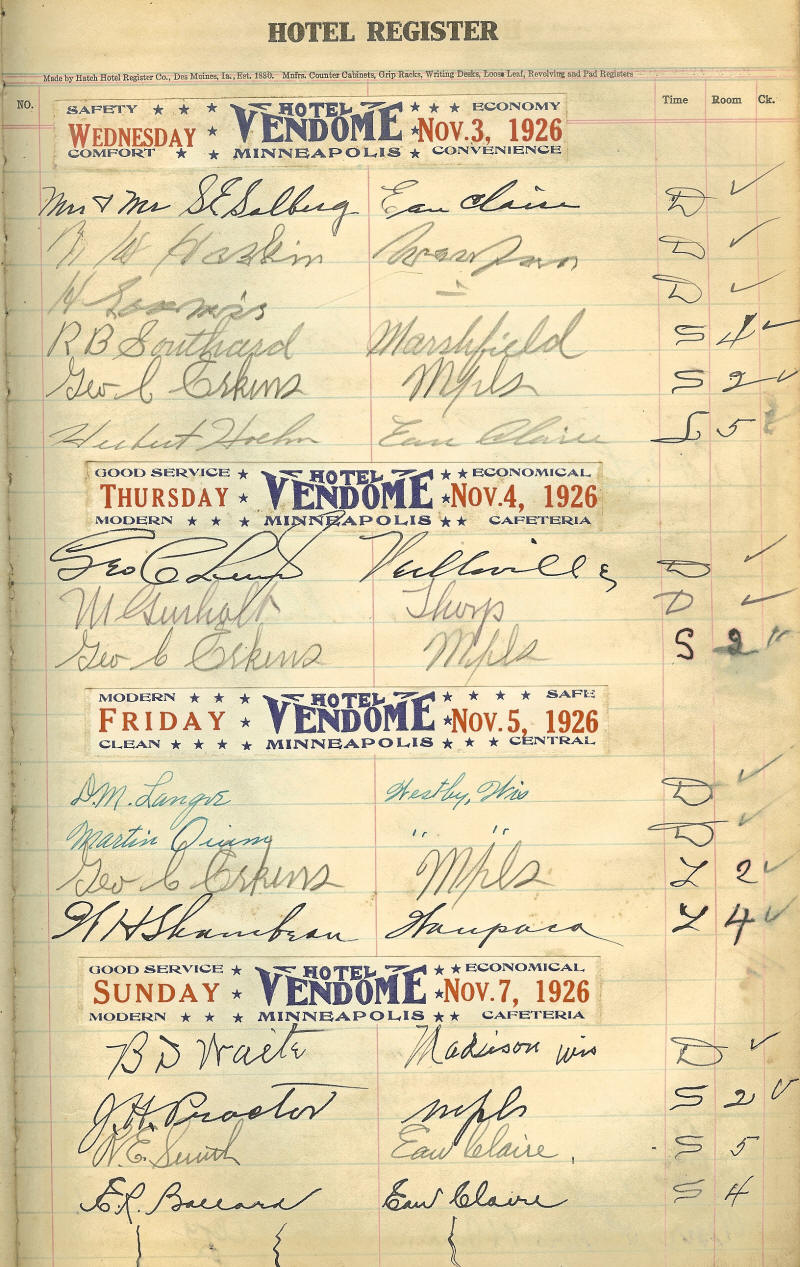 HOTEL REGISTER
Made by Hatch Hotel Register Co., Des Moines, Ia., Est. 1880. Mnfrs. Counter Cabinets, Grip Racks, Writing Desks, Loose Leaf, Revolving and Pad Registers
NO. Time Room Ck.
SAFETY ★ ★ ★ HOTEL ★ ★ ★ ECONOMY
WEDNESDAY ★ VENDOME ★ NOV. 3, 1926
COMFORT ★ ★ MINNEAPOLIS ★ CONVENIENCE
Mrs & Mr S E Solberg Eau Claire D ✓
Haskin D ✓
H Loomis " D ✓
R B Southard Marshfield S 4 ✓
Geo C Erkins Mpls S 2 ✓
Herbert Hoehn Eau Claire L 5
GOOD SERVICE ★ HOTEL ★ ★ ECONOMICAL
THURSDAY ★ VENDOME ★ NOV. 4, 1926
MODERN ★ ★ ★ MINNEAPOLIS ★ ★ CAFETERIA
Geo C Neillsville D ✓
M Gurholt Thorp D ✓
Geo C Erkins Mpls S 2 "
MODERN ★ ★ ★ HOTEL ★ ★ ★ ★ SAFE
FRIDAY ★ VENDOME ★ NOV. 5, 1926
CLEAN ★ ★ ★ ★ MINNEAPOLIS ★ ★ ★ CENTRAL
D. M. Langve Westby, Wis D ✓
Martin " " D ✓
Geo C Erkins Mpls L 2 ✓
W H Shambeau Waupaca L 4 ✓
GOOD SERVICE ★ HOTEL ★ ★ ECONOMICAL
SUNDAY ★ VENDOME ★ NOV. 7, 1926
MODERN ★ ★ ★ MINNEAPOLIS ★ ★ CAFETERIA
B D Waite Madison Wis D ✓
J. H. Proctor Mpls S 2 ✓
W. E. Smith Eau Claire, S 5
E. R. Ballard Eau Claire S 4